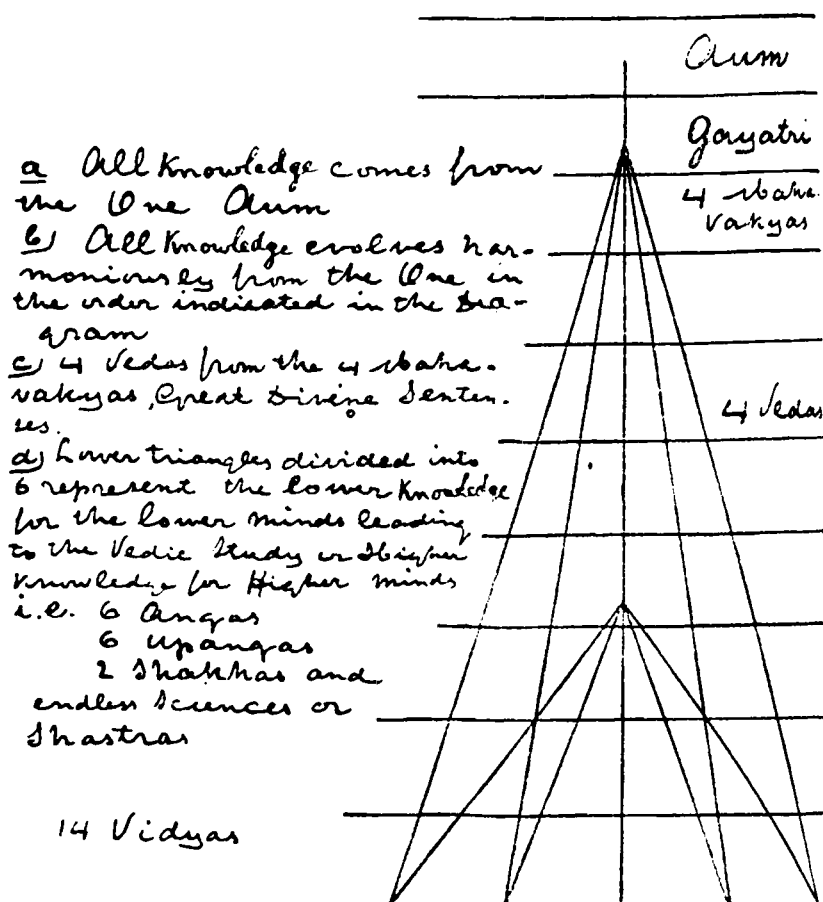 Aum
Gayatri
4 Maha-
Vakyas
4 Vedas
a All Knowledge comes from
the One Aum
b) All Knowledge evolves har-
moniously from the One in
the order indicated in the Dia-
gram
c) 4 Vedas from the 4 Maha-
vakyas, Great Divine Senten-
ses.
d) Lower triangles divided into
6 represent the lower Knowledge
for the lower minds leading
to the Vedic Study or Higher
Knowledge for Higher minds
i.e. 6 Angas
6 Upangas
2 Shakhas and
endless Sciences or
Shastras
14 Vidyas